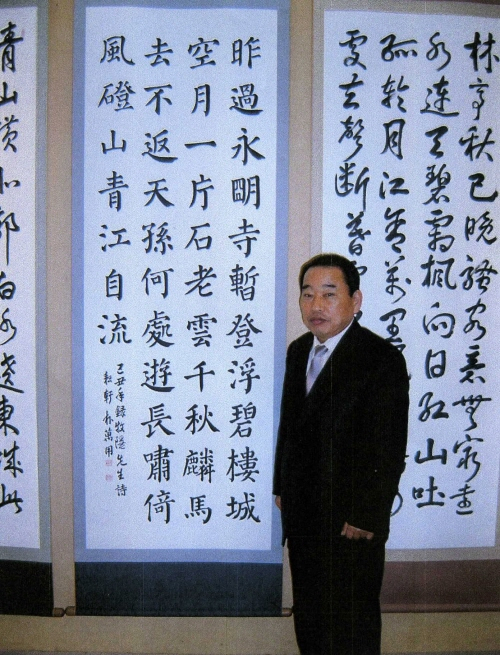 林亭秋已晚騷客意無窮遠
水連天碧霜楓向日紅山吐
孤輪月江含萬里
處去聲斷暮
昨過永明寺暫登浮碧樓城
空月一片石老雲千秋麟馬
去不返天孫何處遊長嘯倚
風磴山青江自流
己丑年錄牧隱先生詩
青山橫北郭白水遶東城此